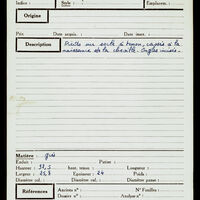 Indice : Siècle : Emplacem. :
Origine
Prix Date acquis. : Date inser. :
Description Pieds sur socle à tenon, cassés à la
naissance de la cheville. Ongles incisés.
Matière : grès
Enduit : Patine :
Hauteur 33,5 haut. tenon : Longueur :
Largeur : 25,8 Epaisseur : 24 Poids :
Diamètre col. : Diamètre : Diamètre panse :
Références Ancien n° : N° Fouilles :
Dossier n° : Analyse n° :